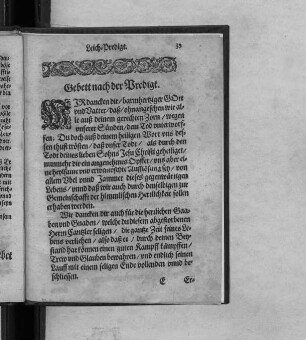 Leich-Predigt.
Gebett nach der Predigt.
WIR dancken dir / barmhertziger GOtt
vnd Vatter / daß / ohnangesehen wir al-
le auß deinem gerechten Zorn / wegen
vnserer Sünden / dem Tod vnterworf-
fen: Du doch auß deinem heiligen Wort vns des-
sen thust trösten / daß vnser Todt / als durch den
Todt deines lieben Sohns Jesu Christi geheiliget /
nunmehr dir ein angenehmes Opffer / vns aber ei-
ne heylsame vnd erwünschte Aufflösung sey / von
allem Vbel vnd Jammer dieses gegenwärtigen
Lebens / vnnd daß wir auch durch denselbigen zur
Gemeinschafft der himmlischen Herrlichkeit sollen
erhaben werden.
Wir dancken dir auch für die herrlichen Gaa-
ben vnd Gnaden / welche du diesem abgestorbenen
Herrn Cantzler seligen / die gantze Zeit seines Le-
bens verliehen / alß daß er / durch deinen Bey-
stand hat können einen guten Kampff kämpffen /
Trew vnd Glauben bewahren / vnd endlich seinen
Lauff mit einem seligen Ende vollenden vnnd be-
schliessen.
E Er-